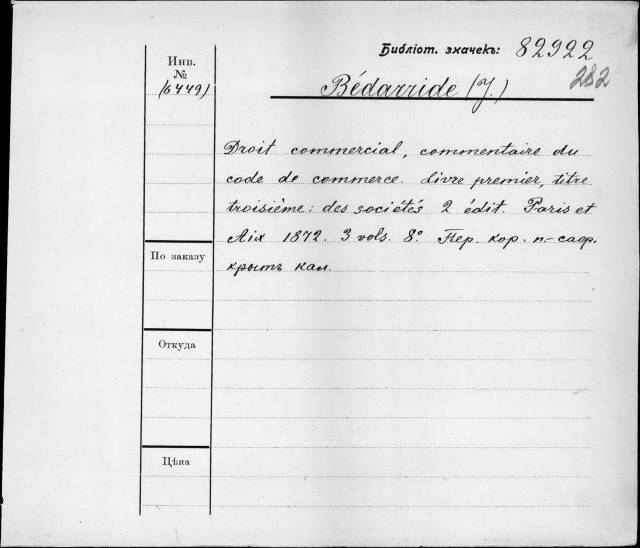 Библіот. значекъ: 82922
282
Инв.
№
(6449)
Bédarride (J.)
Droit commercial, commentaire du
code de commerce. Livre premier, titre
troisième: des sociétés 2 édit. Paris et
Aix 1872. 3 vols. 8º. Пер. кор. п.-саф.
крыт кал.
По заказу
Откуда
Цѣна